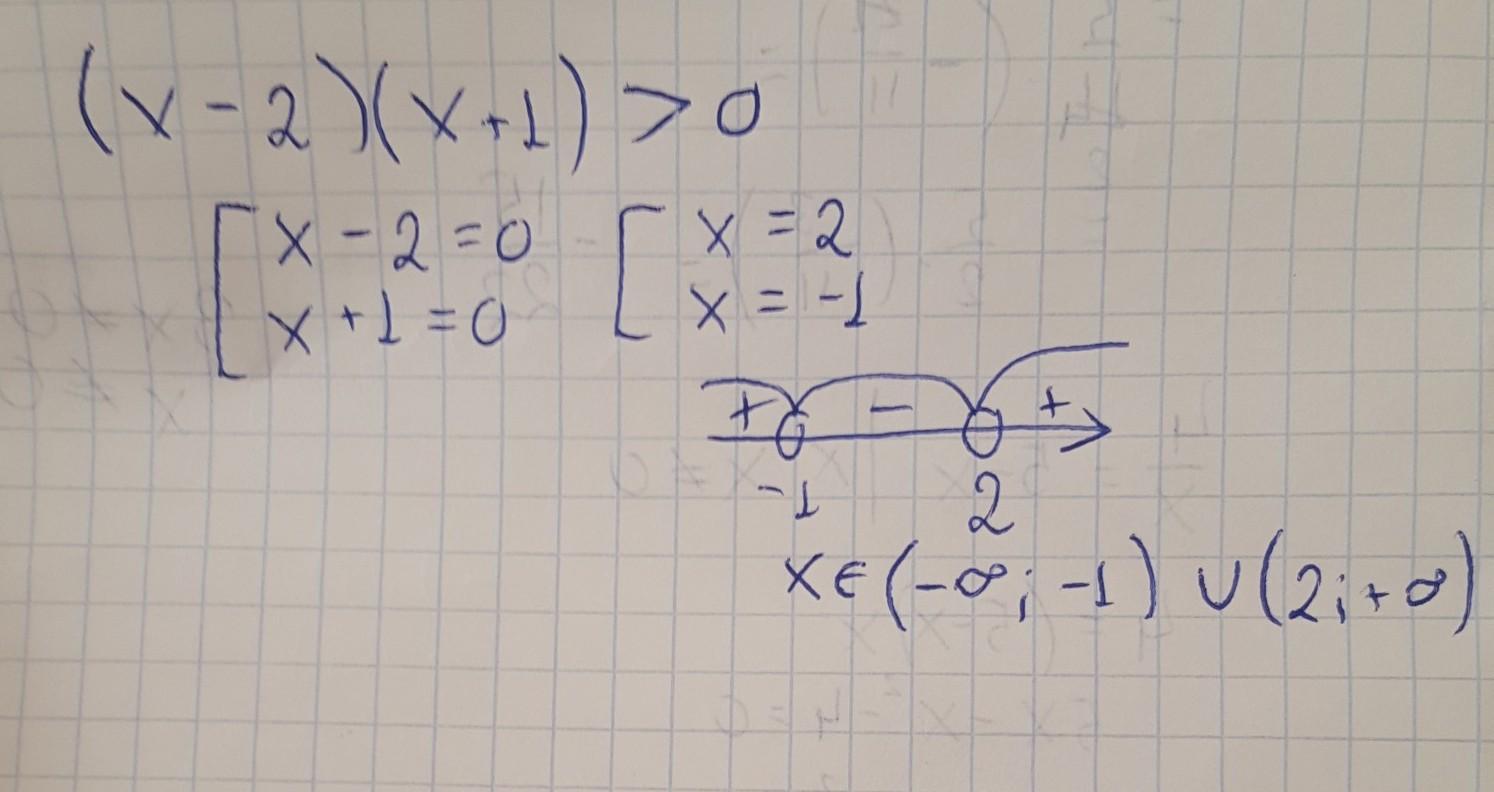 (x-2)(x+1) > 0
[ x - 2 = 0 [ x = 2
x + 1 = 0 x = -1
+ - +
-1 2
x ∈ (-∞; -1) ∪ (2; +∞)